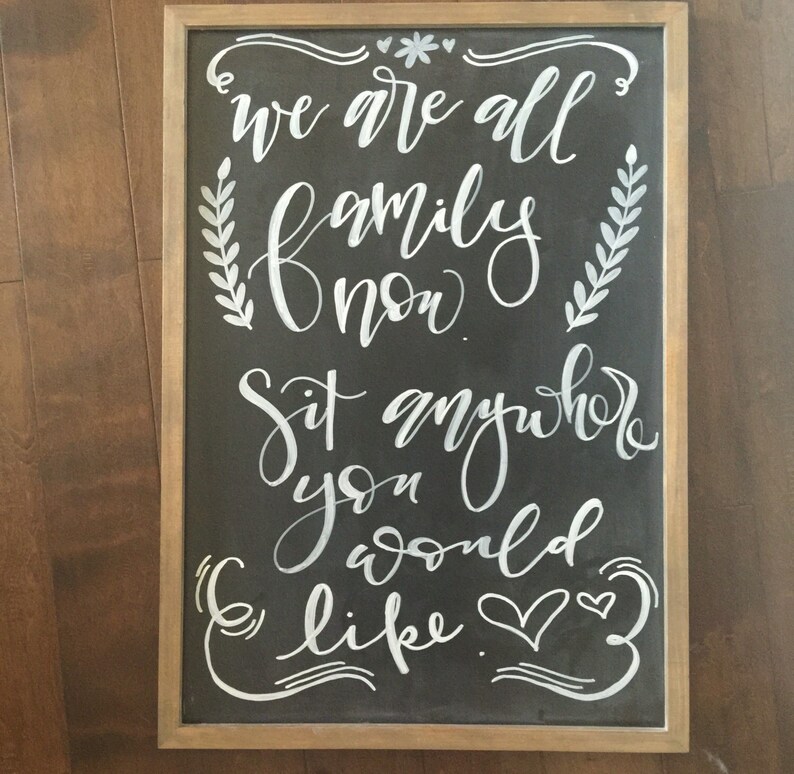 we are all
family
now.
Sit anywhere
you
would
like.